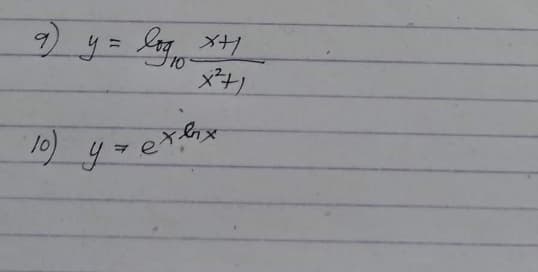 9) y = log₁₀ (x+1)/(x²+1)
10) y = e^(x ln x)